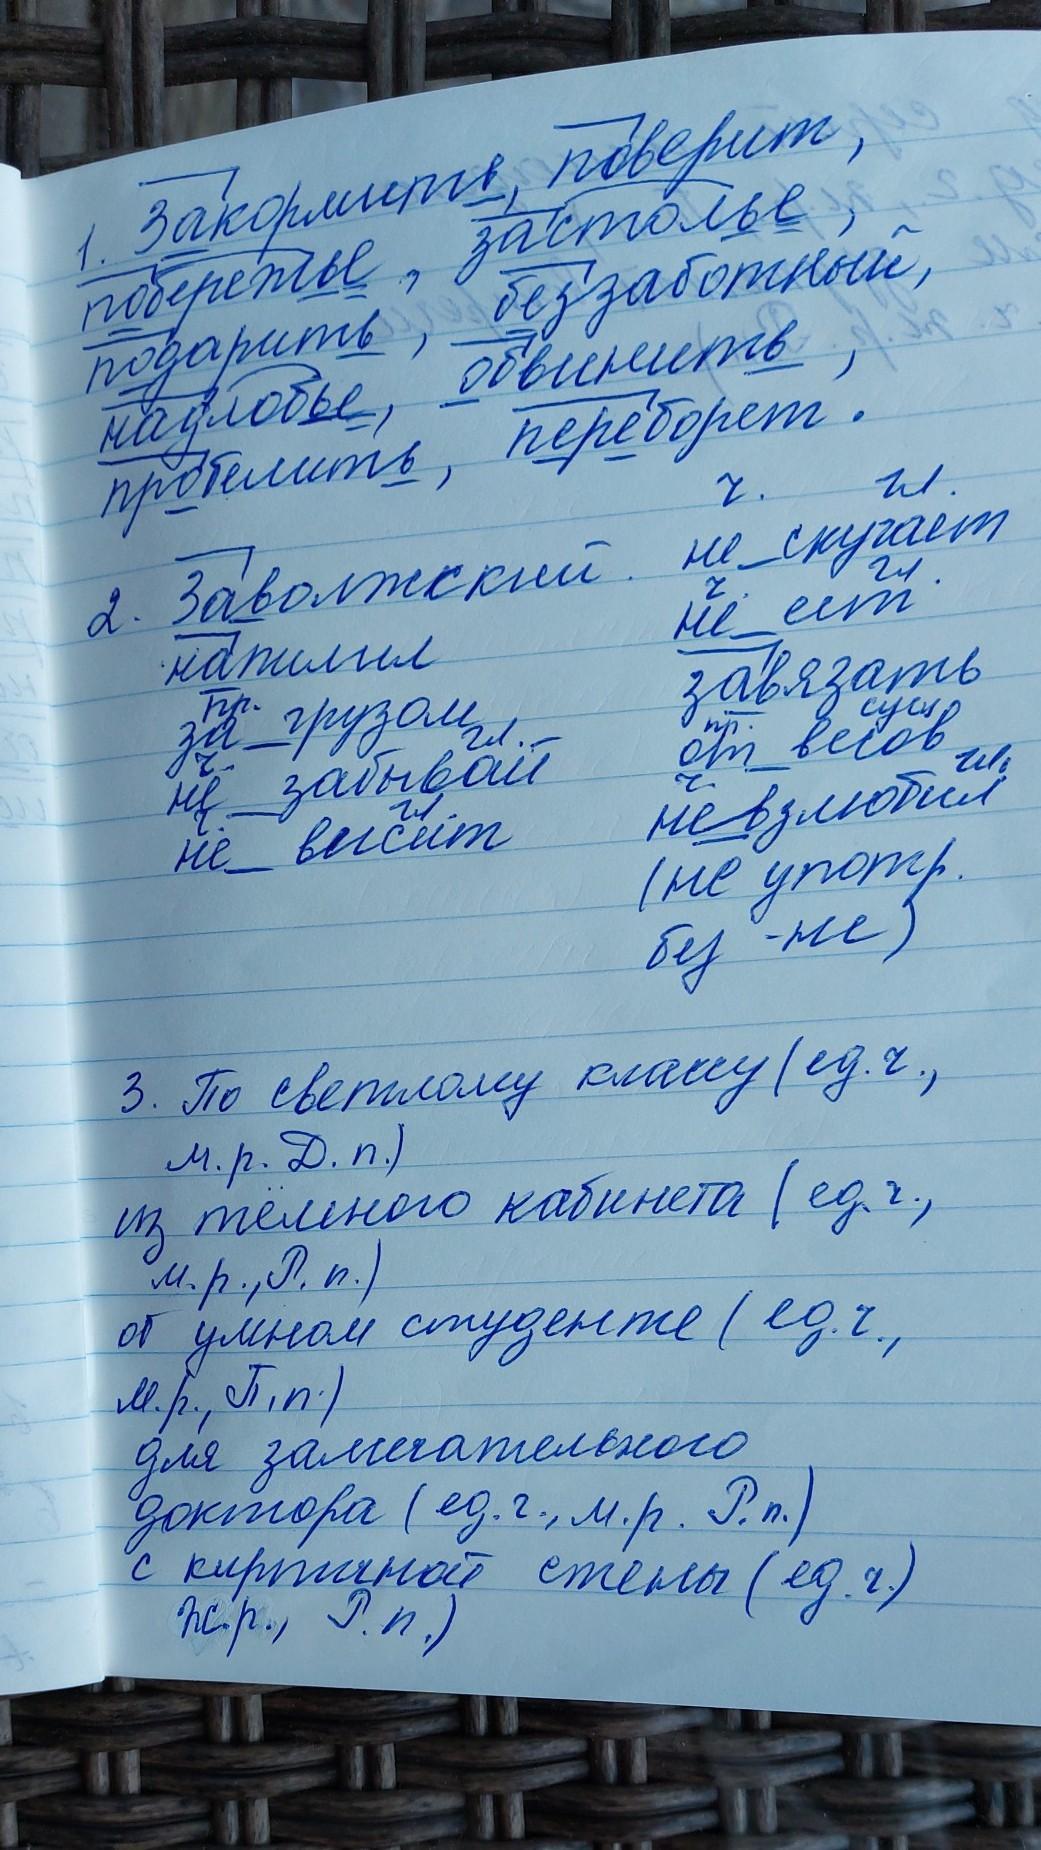 1. Закормить, поверит,
побережье, застолье,
подарить, беззаботный,
надлобье, обвинить,
пробелить, переборет.
2. Заволжский.
напилил
пр.
за_грузом,
ч. гл.
не_забывай
ч. гл.
не_висит
ч. гл.
не_скучает
ч. гл.
не_ест
завязать
пр. сущ.
от_весов
ч. гл.
невзлюбил
(не употр.
без -не)
3. По светлому классу (ед.ч.,
м.р. Д.п.)
из тёмного кабинета (ед.ч.,
м.р., Р.п.)
об умном студенте (ед.ч.,
м.р., П.п.)
для замечательного
доктора (ед.ч., м.р. Р.п.)
с кирпичной стены (ед.ч.)
ж.р., Р.п.)